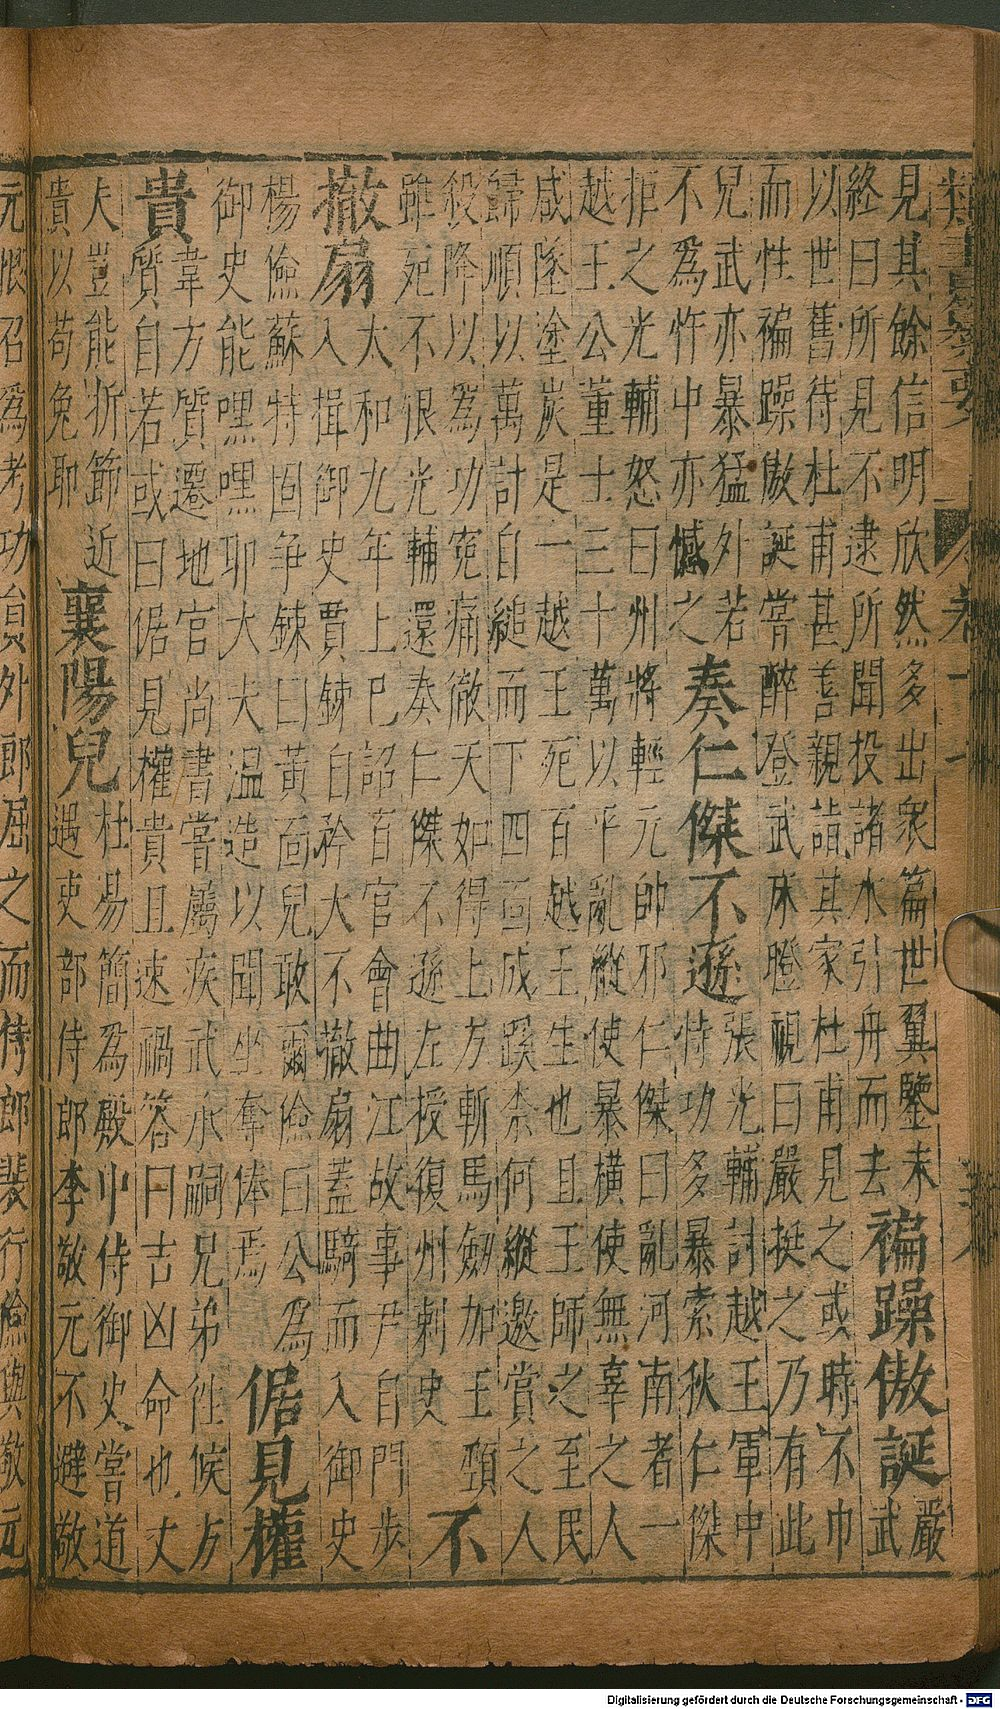 類書纂要 卷十七
見其餘信明欣然多出衆篇世翼鑒未
終曰所見不逮所聞投諸水引舟而去
褊躁傲誕
嚴
武
以世舊待杜甫甚善親詣其家杜甫見之或時不巾
而性褊躁傲誕嘗醉登武床瞪視曰嚴挺之乃有此
兒武亦暴猛外若
不為忤中亦憾之
奏仁傑不遜
張光輔討越王軍中
恃功多暴索狄仁傑
拒之光輔怒曰州將輕元帥邪仁傑曰亂河南者一
越王公董士三十萬以平亂縱使暴橫使無辜之人
咸墜塗炭是一越王死百越王生也且王師之至民
歸順以萬計自縋而下四面成蹊柰何縱邀賞之人
殺降以為功寃痛徹天如得上方斬馬劔加王頸
雖死不恨光輔還奏仁傑不遜左授復州刺史
不
撤扇
太和九年上巳詔百官會曲江故事尹自門步
入揖御史賈餗自矜大不撤扇蓋騎而入御史
楊儉蘇特固爭餗曰黃面兒敢爾儉曰公為
御史能嘿嘿耶大夫温造以聞坐奪俸焉
倨見權
貴
韋方質遷地官尚書嘗屬疾武承嗣兄弟往候方
質自若或曰倨見權貴且速禍答曰吉凶命也丈
夫豈能折節近
貴以苟免耶
襄陽兒
杜易簡為殿中侍御史嘗道
遇吏部侍郎李敬元不避敬
元恨召為考功員外郎屈之而侍郎裴行儉與敬元
Digitalisierung gefördert durch die Deutsche Forschungsgemeinschaft - DFG